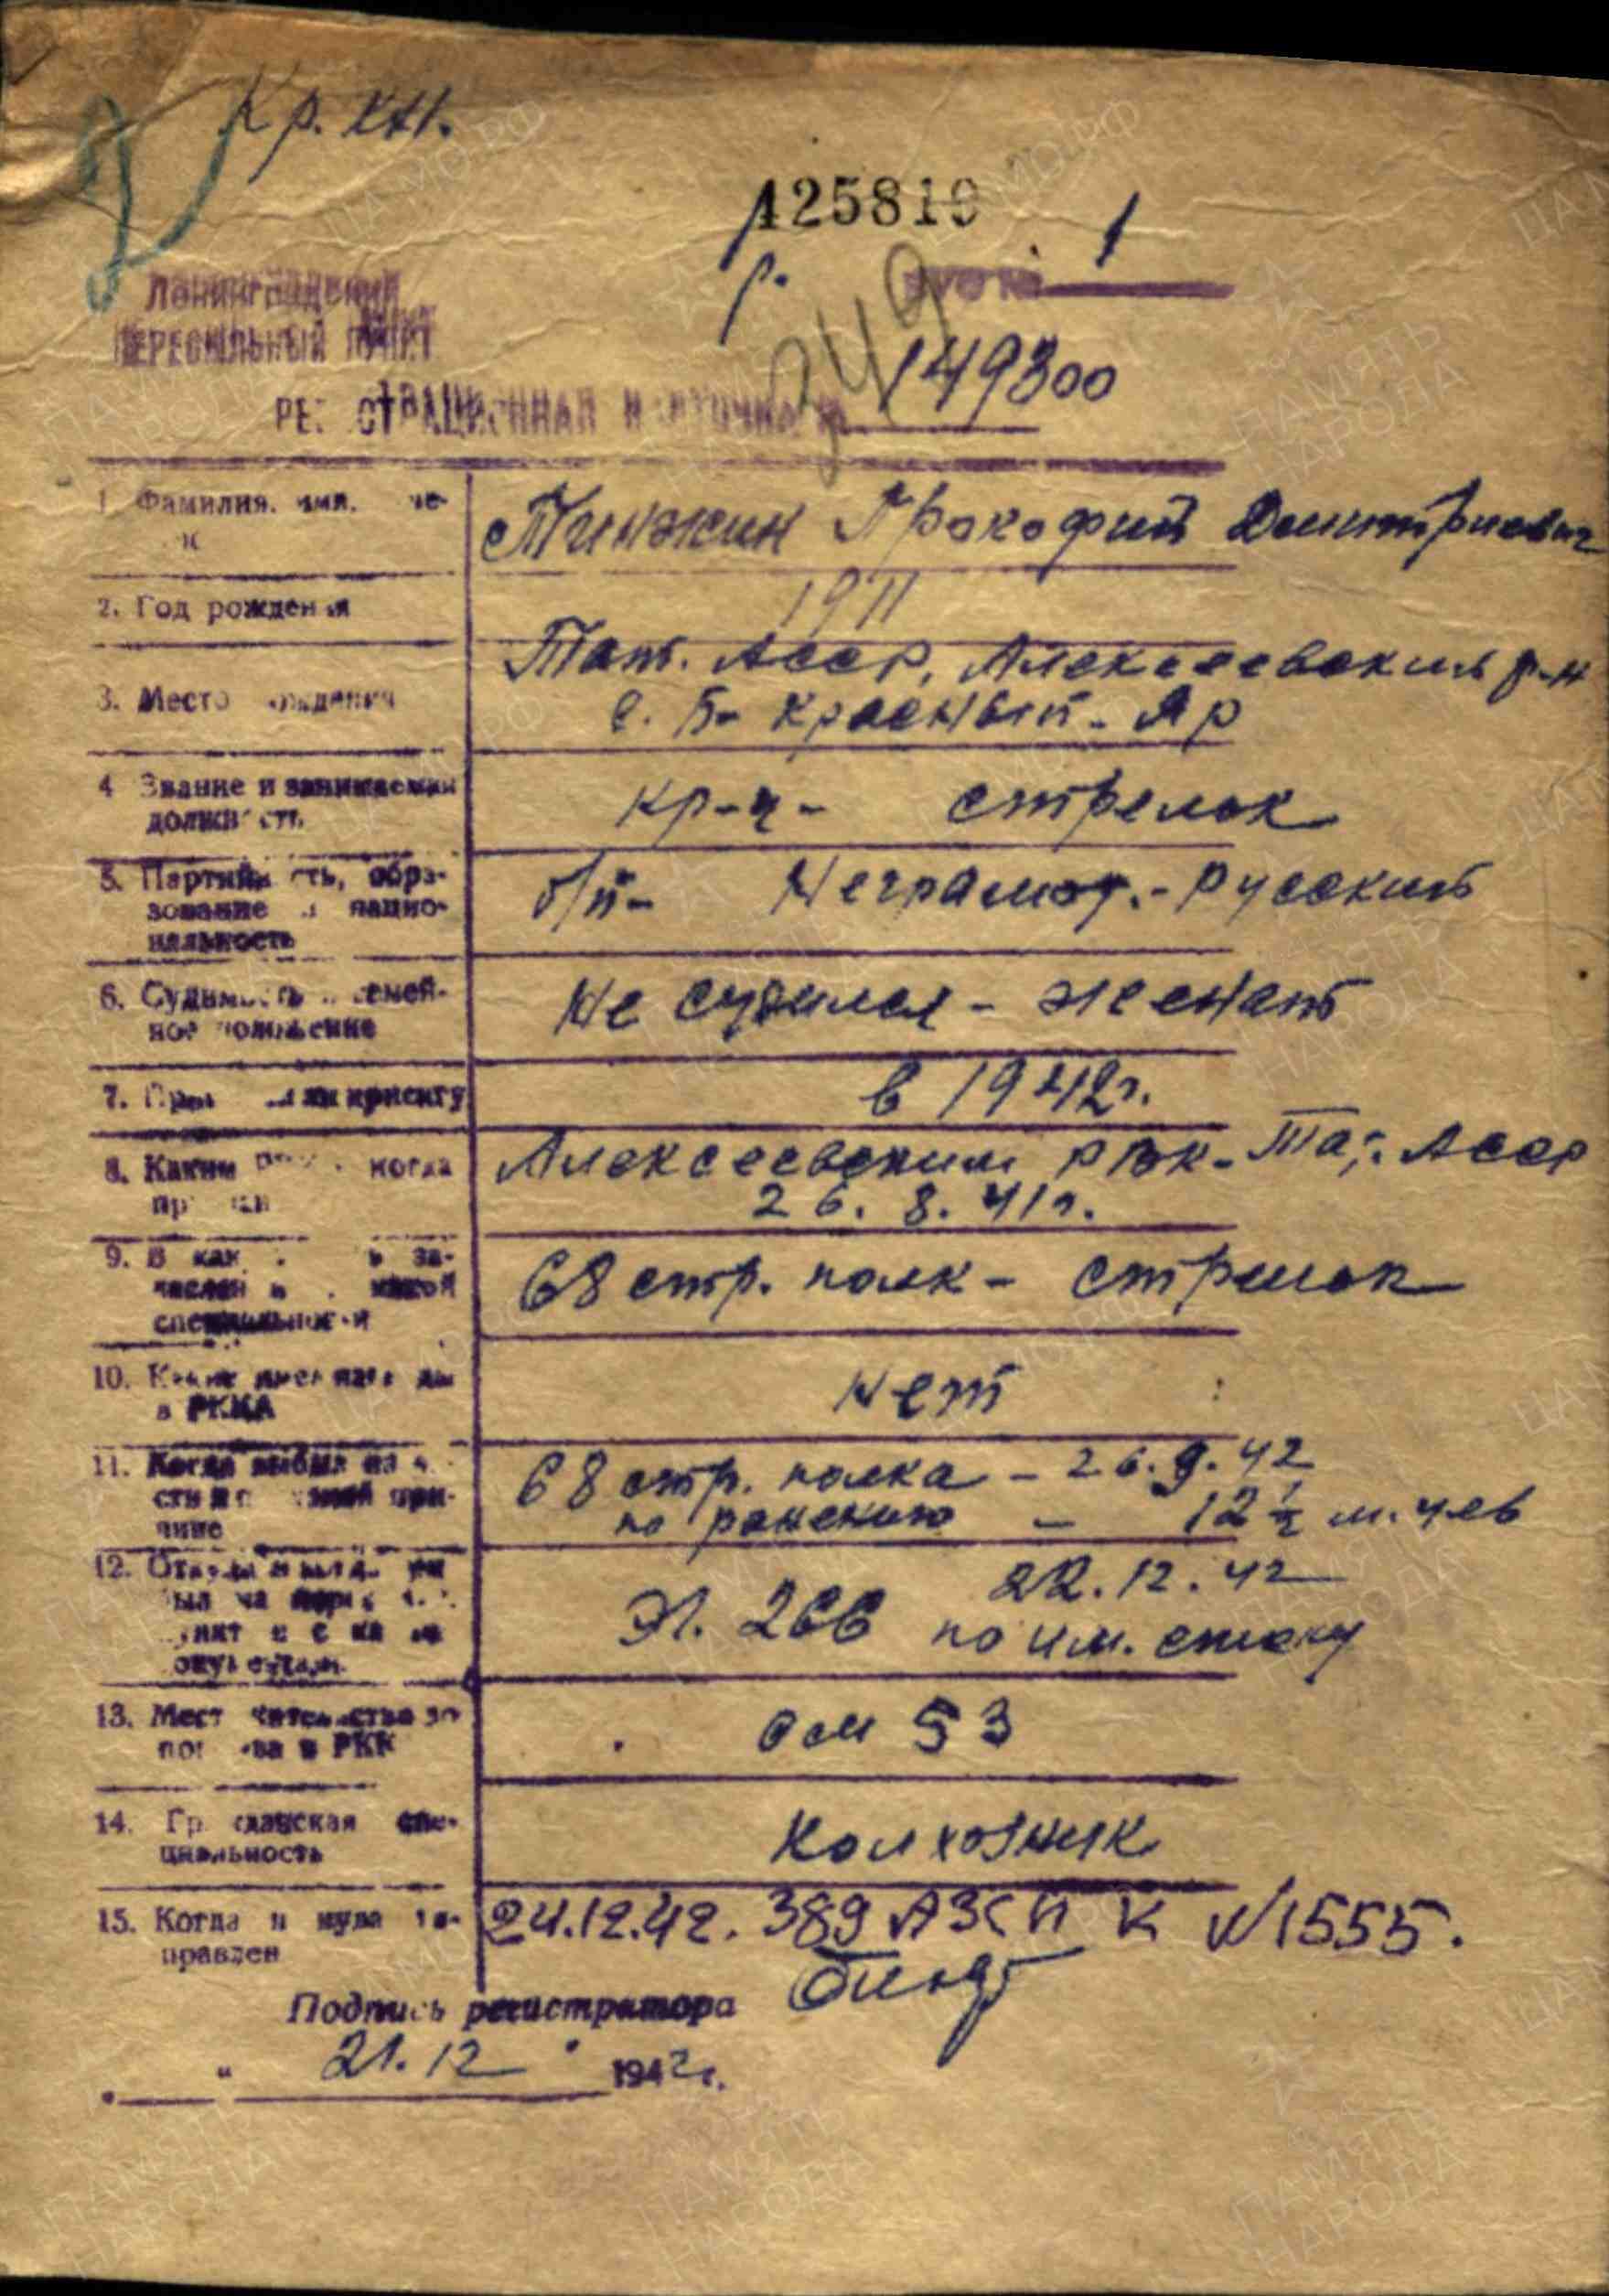 Кр. кат.
125819
р.
249
1
149300
ЛЕНИНГРАДСКИЙ
ПЕРЕСЫЛЬНЫЙ ПУНКТ
РЕГИСТРАЦИОННАЯ КАРТОЧКА №
1. Фамилия, имя,
Прокофий Дмитриевич
2. Год рождения
1911
3. Место рождения
Тат. АССР, Алексеевский р-н
с. Б- Красный-Яр
4 Звание и занимаемая
должность
кр-ц- стрелок
5. Партийность, обра-
зование и нацио-
нальность
б/п- Неграмот.- Русский
6. Судимость и семей-
ное положение
Не судился - женат
7.
в 1942г.
8. Каким РВК и когда
призван
Алексеевским РВК- Тат. АССР
26. 8. 41г.
9. В какую часть за-
числен и какой
специальности
68 стр. полк - стрелок
10.
в РККА
Нет
11. Когда выбыл из ча-
сти и по какой при-
чине
68 стр. полка - 26.9.42
по ранению - 12 1/2 м. ч лев
12. Откуда и когда
22.12.42
ЭГ. 266 по им. списку
13. Место жительства до
призыва в РКК
см 53
14. Гражданская спе-
циальность
Колхозник
15. Когда и куда на-
правлен
24.12.42. 389 АЗСП К №1555.
Подпись регистратора
21.12 1942г.